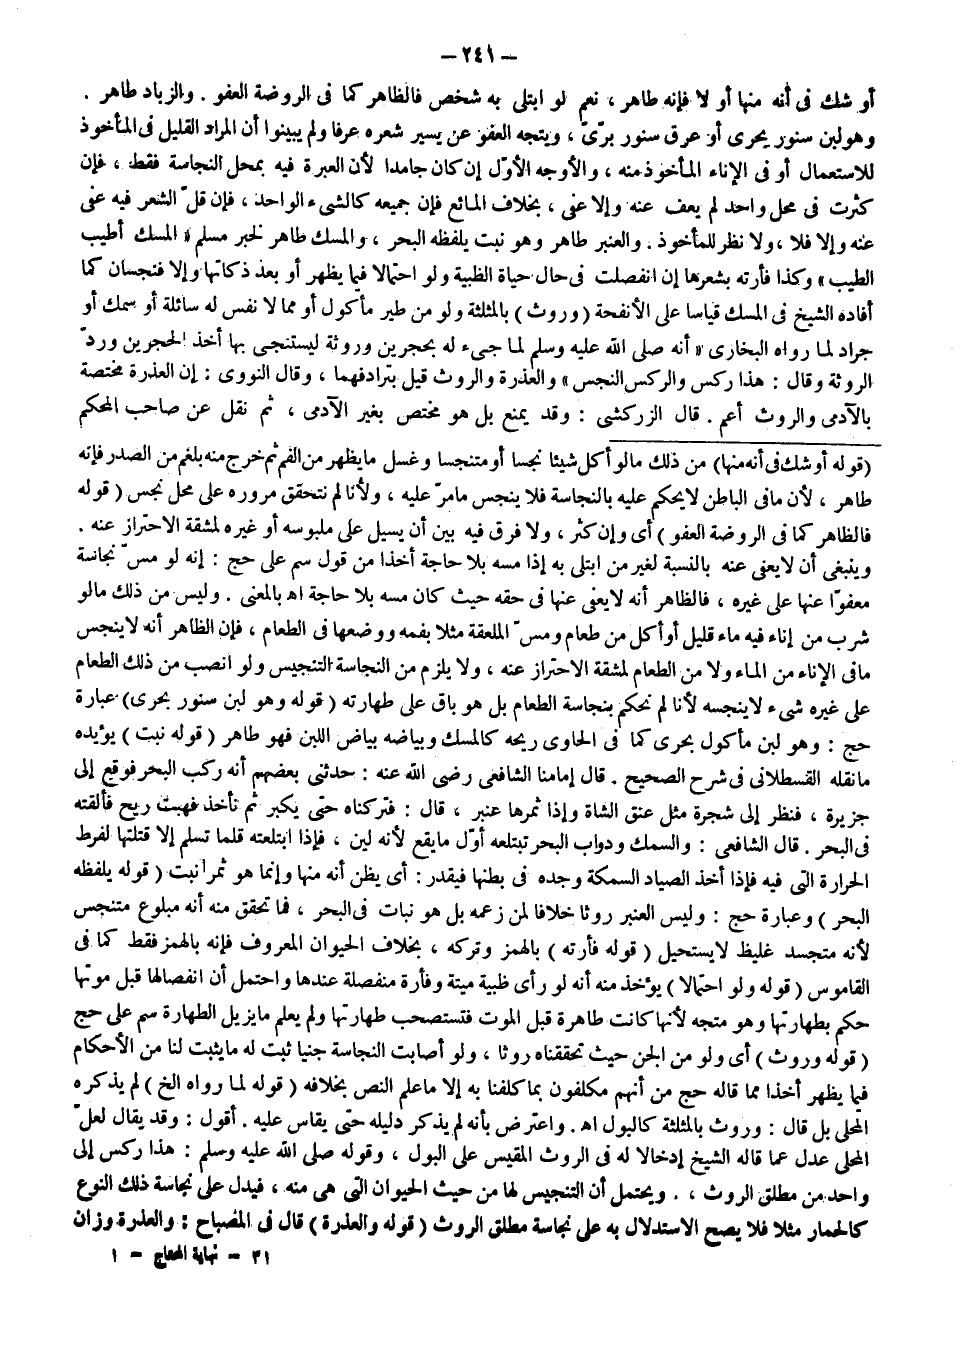 — ٢٤١ —
أو شك فى أنه منها أو لا فإنه طاهر ، نعم لو ابتلى به شخص فالظاهر كما فى الروضة العفو . والزباد طاهر .
وهولبن سنور بحرى أو عرق سنور برّىّ ، ويتجه العفو عن يسير شعره عرفا ولم يبينوا أن المراد القليل فى المأخوذ
للاستعمال أو فى الإناء المأخوذ منه ، والأوجه الأوّل إن كان جامدا لأن العبرة فيه بمحل النجاسة فقط ، فإن
كثرت فى محل واحد لم يعف عنه وإلا عفى ، بخلاف المائع فإن جميعه كالشىء الواحد ، فإن قلّ الشعر فيه عفى
عنه وإلا فلا ، ولا نظر للمأخوذ . والعنبر طاهر وهو نبت يلفظه البحر ، والمسك طاهر لخبر مسلم « المسك أطيب
الطيب » وكذا فأرته بشعرها إن انفصلت فى حال حياة الظبية ولو احتمالا فيما يظهر أو بعد ذكاتها وإلا فنجسان كما
أفاده الشيخ فى المسك قياسا على الأنفحة ( وروث ) بالمثلثة ولو من طير مأكول أو مما لا نفس له سائلة أو سمك أو
جراد لما رواه البخارى « أنه صلى الله عليه وسلم لما جىء له بحجرين وروثة ليستنجى بها أخذ الحجرين وردّ
الروثة وقال : هذا ركس والركس النجس » والعذرة والروث قيل بترادفهما ، وقال النووى : إن العذرة مختصة
بالآدمى والروث أعم . قال الزركشى : وقد يمنع بل هو مختص بغير الآدمى ، ثم نقل عن صاحب المحكم
(قوله أو شك فى أنه منها) من ذلك مالو أكل شيئا نجسا أو متنجسا وغسل مايظهر من الفم ثم خرج منه بلغم من الصدر فإنه
طاهر ، لأن مافى الباطن لايحكم عليه بالنجاسة فلا ينجس مامرّ عليه ، ولأنا لم نتحقق مروره على محل نجس ( قوله
فالظاهر كما فى الروضة العفو ) أى وإن كثر ، ولا فرق فيه بين أن يسيل على ملبوسه أو غيره لمشقة الاحتراز عنه .
وينبغى أن لايعفى عنه بالنسبة لغير من ابتلى به إذا مسه بلا حاجة أخذا من قول سم على حج : إنه لو مسّ نجاسة
معفوّا عنها على غيره ، فالظاهر أنه لايعفى عنها فى حقه حيث كان مسه بلا حاجة اه بالمعنى . وليس من ذلك مالو
شرب من إناء فيه ماء قليل أو أكل من طعام ومسّ الملعقة مثلا بفمه ووضعها فى الطعام ، فإن الظاهر أنه لاينجس
مافى الإناء من الماء ولا من الطعام لمشقة الاحتراز عنه ، ولا يلزم من النجاسة التنجيس ولو انصب من ذلك الطعام
على غيره شىء لاينجسه لأنا لم نحكم بنجاسة الطعام بل هو باق على طهارته ( قوله وهو لبن سنور بحرى) عبارة
حج : وهو لبن مأكول بحرى كما فى الحاوى ريحه كالمسك وبياضه بياض اللبن فهو طاهر ( قوله نبت ) يؤيده
مانقله القسطلانى فى شرح الصحيح . قال إمامنا الشافعى رضى الله عنه : حدثنى بعضهم أنه ركب البحر فوقع إلى
جزيرة ، فنظر إلى شجرة مثل عنق الشاة وإذا ثمرها عنبر ، قال : فتركناه حتى يكبر ثم نأخذ فهبت ريح فألقته
فى البحر . قال الشافعى : والسمك ودواب البحر تبتلعه أوّل مايقع لأنه لين ، فإذا ابتلعته قلما تسلم إلا قتلتها لفرط
الحرارة التى فيه فإذا أخذ الصياد السمكة وجده فى بطنها فيقدر : أى يظن أنه منها وإنما هو ثمر نبت ( قوله يلفظه
البحر ) وعبارة حج : وليس العنبر روثا خلافا لمن زعمه بل هو نبات فى البحر ، فما تحقق منه أنه مبلوع متنجس
لأنه متجسد غليظ لايستحيل ( قوله فأرته ) بالهمز وتركه ، بخلاف الحيوان المعروف فإنه بالهمز فقط كما فى
القاموس ( قوله ولو احتمالا ) يؤخذ منه أنه لو رأى ظبية ميتة وفأرة منفصلة عندها واحتمل أن انفصالها قبل موتها
حكم بطهارتها وهو متجه لأنها كانت طاهرة قبل الموت فتستصحب طهارتها ولم يعلم مايزيل الطهارة سم على حج
( قوله وروث ) أى ولو من الجن حيث تحققناه روثا ، ولو أصابت النجاسة جنيا ثبت له مايثبت لنا من الأحكام
فيما يظهر أخذا مما قاله حج من أنهم مكلفون بما كلفنا به إلا ماعلم النص بخلافه ( قوله لما رواه الخ ) لم يذكره
المحلى بل قال : وروث بالمثلثة كالبول اه . واعترض بأنه لم يذكر دليله حتى يقاس عليه . أقول : وقد يقال لعلّ
المحلى عدل عما قاله الشيخ إدخالا له فى الروث المقيس على البول ، وقوله صلى الله عليه وسلم : هذا ركس إلى
واحد من مطلق الروث ، . ويحتمل أن التنجيس لها من حيث الحيوان التى هى منه ، فيدل على نجاسة ذلك النوع
كالحمار مثلا فلا يصح الاستدلال به على نجاسة مطلق الروث ( قوله والعذرة ) قال فى المصباح : والعذرة وزان
٣١ — نهاية المحتاج — ١